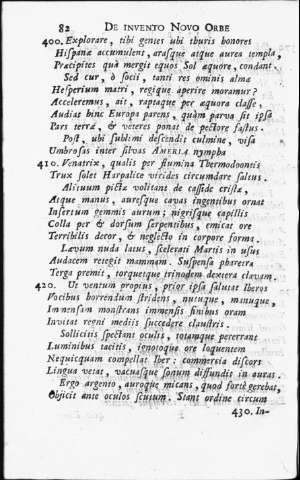 82 DE INVENTO NOVO ORBE
400. Explorare, tibi gentes ubi thuris honores
Hispanæ accumulent, arasque atque aurea templa,
Præcipites quà mergit equos Sol æquore, condant.
Sed cur, ô socii, tanti res ominis almæ
Hesperium matri, regique aperire moramur?
Acceleremus, ait, raptaque per æquora classe,
Audias hinc Europa parens, quàm parva sit ipsa
Pars terræ, & veteres ponat de pectore fastus.
Post, ubi sublimi descendit culmine, visa
Umbrosis inter silvas AMERIA nympha
410. Venatrix, qualis per flumina Thermodoontis
Trux solet Harpalice virides circumdare saltus.
Alituum picta volitant de casside cristæ,
Atque manus, auresque cavas ingentibus ornat
Insertum gemmis aurum; nigrisque capillis
Colla per & dorsum serpentibus, emicat ore
Terribilis decor, & neglecto in corpore forma.
Lævum nuda latus, scelerati Martis in usus
Audacem retegit mammam. Suspensa pharetra
Terga premit, torquetque trinodem dextera clavam.
420. Ut ventum propius, prior ipsa salutat Iberos
Vocibus horrendum stridens, nutuque, manuque,
Immensum monstrans immensis finibus oram
Invitat regni mediis succedere claustris.
Solliciti spectant oculis, totamque pererrant
Luminibus tacitis, ignotoque ore loquentem
Nequicquam compellat Iber: commercia discors
Lingua vetat, vacuasque sonum diffundit in auras.
Ergo argento, auroque micans, quod fortè gerebat,
Objicit ante oculos scutum. Stant ordine circum
430. In-